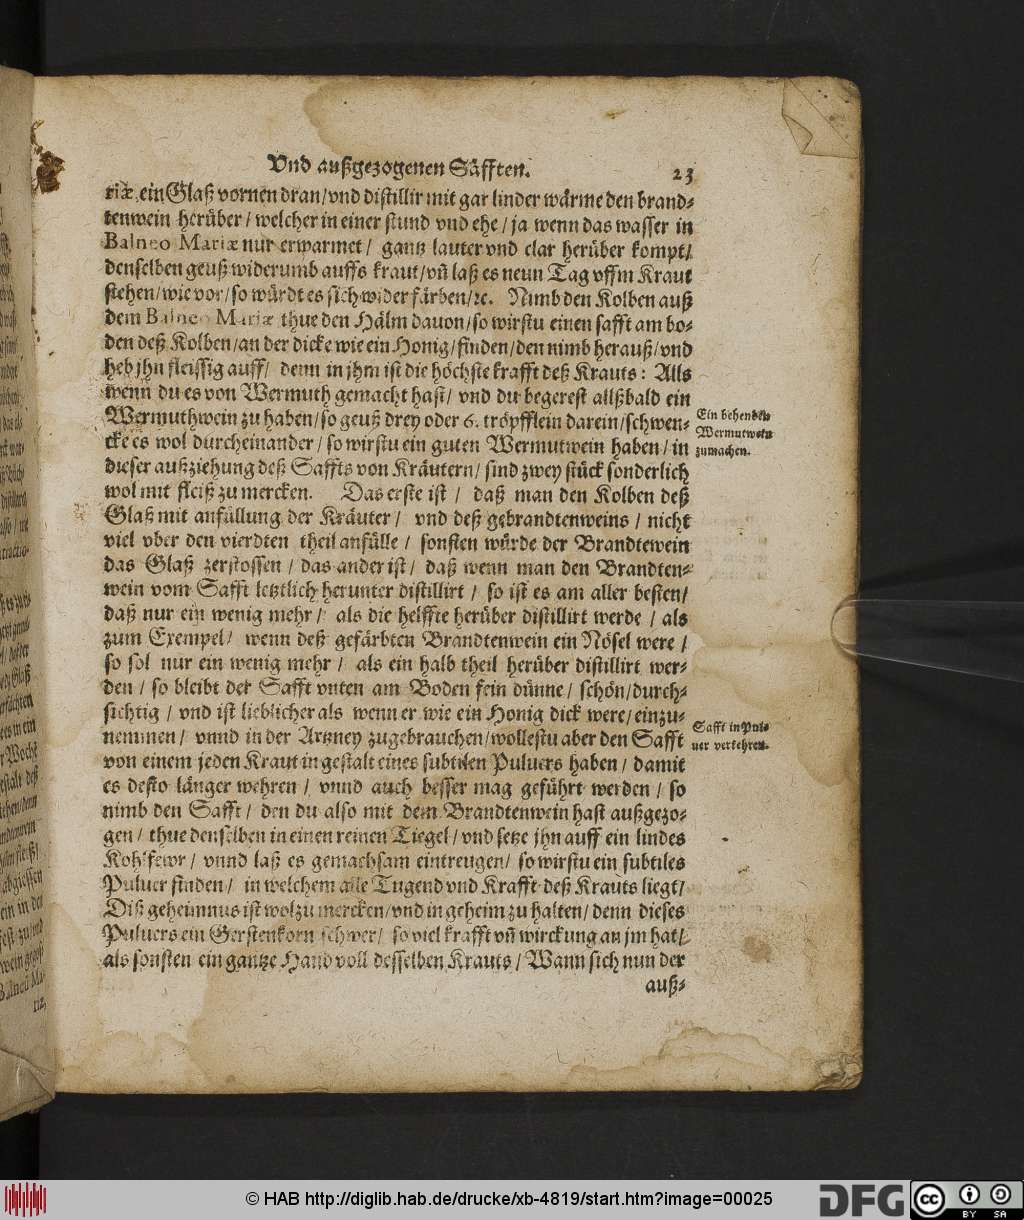 Vnd außgezogenen Säfften. 23
riæ, ein Glaß vornen dran/vnd distillir mit gar linder wärme den brand⸗
tenwein herüber/welcher in einer stund vnd ehe/ja wenn das wasser in
Balneo Mariæ nur erwarmet/ gantz lauter vnd clar herüber kompt/
denselben geuß widerumb auffs kraut/vñ laß es neun Tag vffm Kraut
stehen/wie vor/so würdt es sich wider färben/ꝛc. Nimb den Kolben auß
dem Balneo Mariæ, thue den Hälm dauon/so wirstu einen safft am bo⸗
den deß Kolben/an der dicke wie ein Honig/finden/den nimb herauß/vnd
heb jhn fleissig auff/ denn in jhm ist die höchste krafft deß Krauts: Alls
wenn du es von Wermuth gemacht hast/ vnd du begerest allßbald ein
Wermuthwein zu haben/so geuß drey oder 6. tröpfflein darein/schwen⸗
cke es wol durcheinander/so wirstu ein guten Wermutwein haben/in
dieser außziehung deß Saffts von Kräutern/sind zwey stück sonderlich
wol mit fleiß zu mercken. Das erste ist/ daß man den Kolben deß
Glaß mit anfüllung der Kräuter/ vnd deß gebrandtenweins/nicht
viel vber den vierdten theil anfülle/ sonsten würde der Brandtewein
das Glaß zerstossen/das ander ist/ daß wenn man den Brandten⸗
wein vom Safft letztlich herunter distillirt/ so ist es am aller besten/
daß nur ein wenig mehr/ als die helffte herüber distillirt werde/als
zum Exempel/ wenn deß gefärbten Brandtenwein ein Nösel were/
so sol nur ein wenig mehr/ als ein halb theil herüber distillirt wer⸗
den/so bleibt der Safft vnten am Boden fein dünne/schön/durch⸗
sichtig/vnd ist lieblicher als wenn er wie ein Honig dick were/einzu⸗
nemmen/ vnnd in der Artzney zugebrauchen/wollestu aber den Safft
von einem jeden Kraut in gestalt eines subtilen Puluers haben/damit
es desto länger wehren/vnnd auch besser mag geführt werden/so
nimb den Safft/ den du also mit dem Brandtenwein hast außgezo⸗
gen/thue denselben in einen reinen Tiegel/vnd setze jhn auff ein lindes
Kohlfewr/vnnd laß es gemachsam eintreugen/so wirstu ein subtiles
Puluer finden/ in welchem alle Tugend vnd Krafft deß Krauts liegt/
Diß geheimnus ist wol zu mercken/vnd in geheim zu halten/denn dieses
Puluers ein Gerstenkorn schwer/ so viel krafft vñ wirckung an jm hat/
als sonsten ein gantze Hand voll desselben Krauts/Wann sich nun der
auß⸗
Ein behenden
Wermutwein
zumachen.
Safft in Pul⸗
uer verkehren.
© HAB http://diglib.hab.de/drucke/xb-4819/start.htm?image=00025
DFG
cc
BY SA